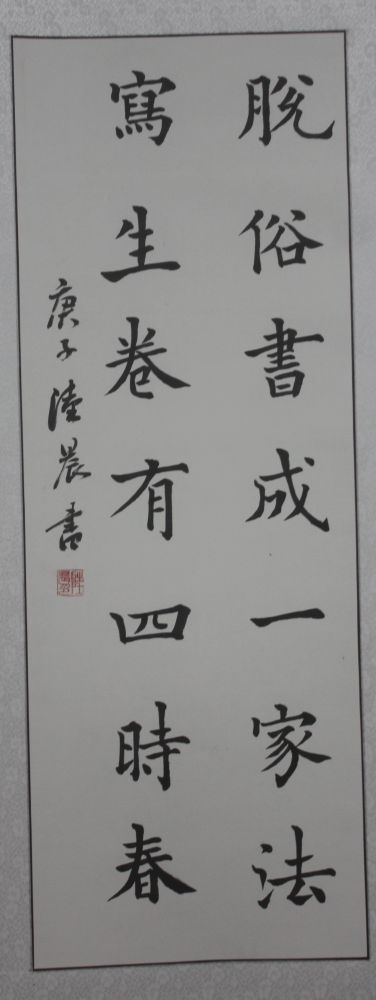 脫俗書成一家法
寫生卷有四時春
庚子陸晨書